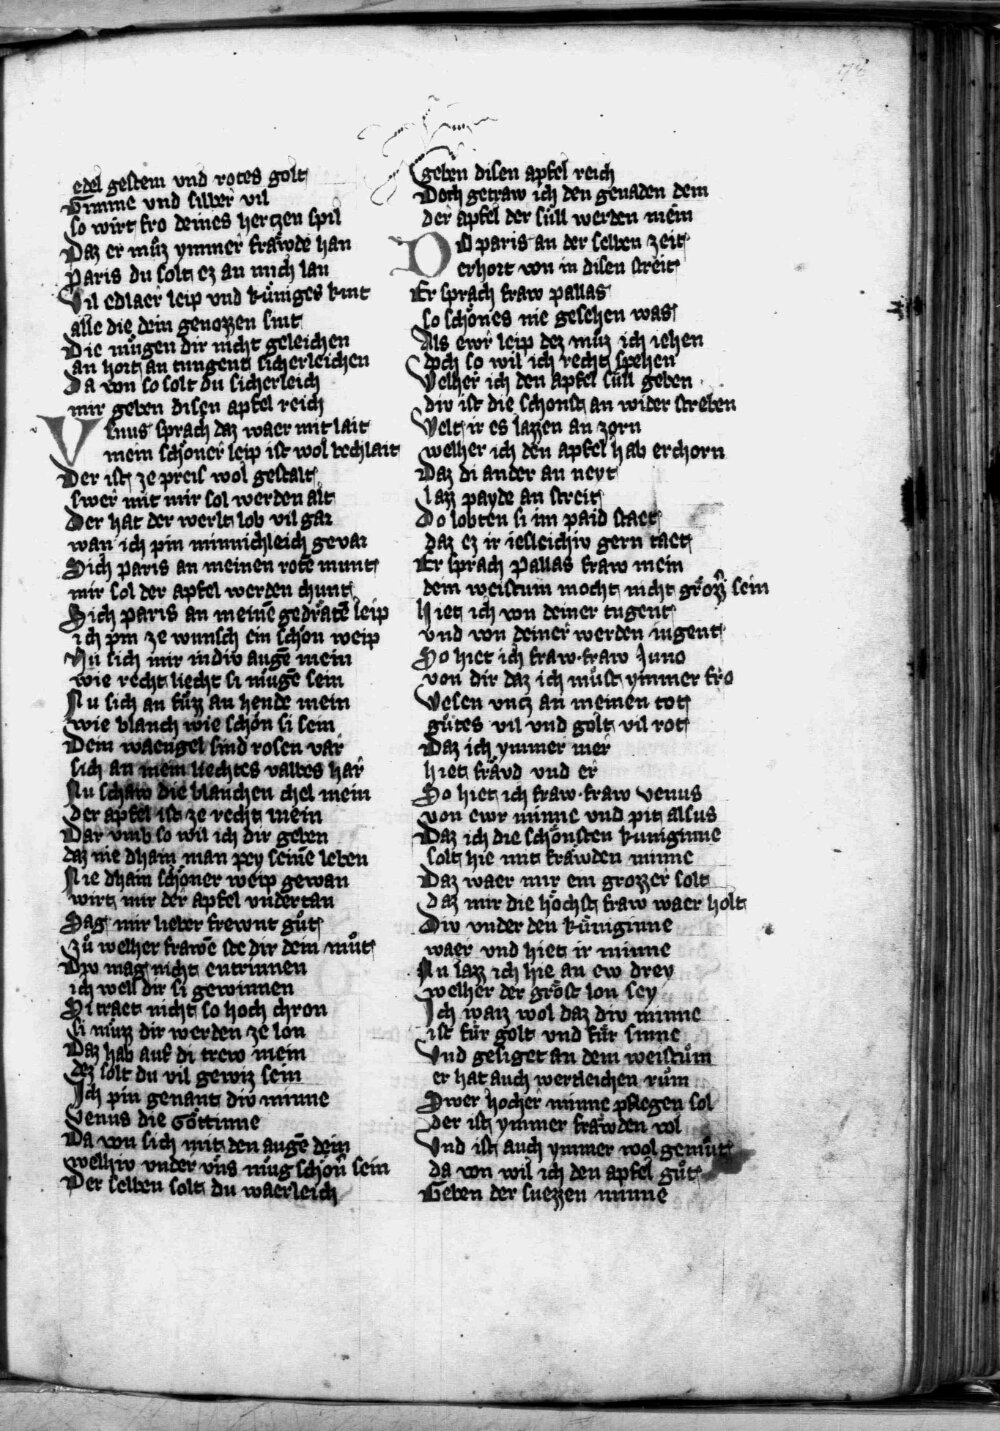 edel gestein vnd rotes golt
Gimme vnd silber vil
so wirt fro deines hertzen spil
Daz er můz ymmer fraẇde han
Paris du solt ez an mich lan
Vil edlaer leip vnd kůniges kint
alle die dein genozzen sint
Die můgen dir nicht geleichen
an hort an tungent sicherleichen
Da von so solt du sicherleich
mir geben disen apfel reich
Venus sprach daz waer mit lait
mein schoner leip ist wol bechlait
Der ist ze preis wol gestalt
swer mit mir sol werden alt
Der hat der werlt lob vil gar
wan ich pin minnichleich gevar
Sich paris an meinen rotē munt
mir sol der apfel werden chunt
Sich paris an meinē gedratē leip
ich pin ze wunsch ein schon weip
Nu sich mir in div augē mein
wie recht liecht si mugē sein
Nu sich an fůzz an hende mein
wie blanch wie schon si sein
Dein waengel sind rosen var
sich an mein liechtes valbes har
Nu schaw die blanchen chel mein
der apfel ist ze recht mein
Dar vmb so wil ich dir geben
daz nie dhain man pey seinē leben
Nie dhain schoner weip gewan
wirt mir der apfel vndertan
Sag mir lieber frewnt gůt
zů welher frawē ste dir dein můt
Div mag nicht entrinnen
ich well dir si gewinnen
Si traet nicht so hoch chron
si můzz dir werden ze lon
Daz hab auf di trew mein
dez solt du vil gewiz sein
Ich pin genant div minne
Venus die Gottinne
Da von sich mit den augē dein
welhiv vnder vns mug schon sein
Der selben solt du waerleich
geben disen apfel reich
Doch getraw ich den genaden dein
der apfel der sull werden mein
Do paris an der selben zeit
erhort von in disen streit
Er sprach fraw pallas
so schones nie gesehen was
Als ewr leip dez můz ich iehen
doch so wil ich recht spehen
Welher ich den apfel sull geben
div ist die schonst an wider streben
Welt ir es lazzen an zorn
welher ich den apfel hab erchorn
Daz di ander an neyt
lazz payde an streit
Do lobten si im paid staet
daz ez ir iesleichiv gern taet
Er sprach Pallas fraw mein
dem weistum mocht nicht grozz sein
Hiet ich von deiner tugent
vnd von deiner werden iugent
So hiet ich fraw fraw Juno
von dir daz ich můst ymmer fro
Wesen vntz an meinen tot
gůtes vil vnd golt vil rot
Daz ich ymmer mer
hiet fravd vnd er
So hiet ich fraw fraw Venus
von ewr minne vnd pit alsus
Daz ich die schonsten kuniginne
solt hie mit frawden minne
Daz waer mir ein grozzer solt
daz mir die hochst fraw waer holt
Div vnder den kůniginne
waer vnd hiet ir minne
Nu lazz ich hie an ew drey
welher der grost lon sey
Ich waiz wol daz div minne
ist fůr golt vnd fůr sinne
Vnd gesiget an dem weistům
er hat auch wertleichen rům
Swer hocher minne pflegen sol
der ist ymmer frawden vol
Vnd ist auch ymmer wol gemůt
da von wil ich den apfel gůt
Geben der suezzen minne